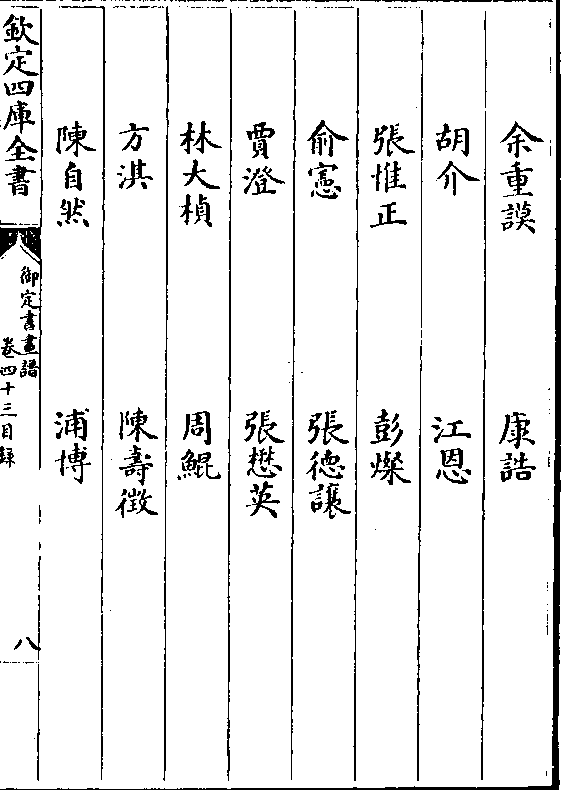 余重謨 康誥
胡介 江恩
張惟正 彭燦
俞憲 張德讓
賈澄 張懋英
林大楨 周鯤
方淇 陳壽徵
陳自然 浦博
欽定四庫全書
御定書畫譜
卷四十三目録
八